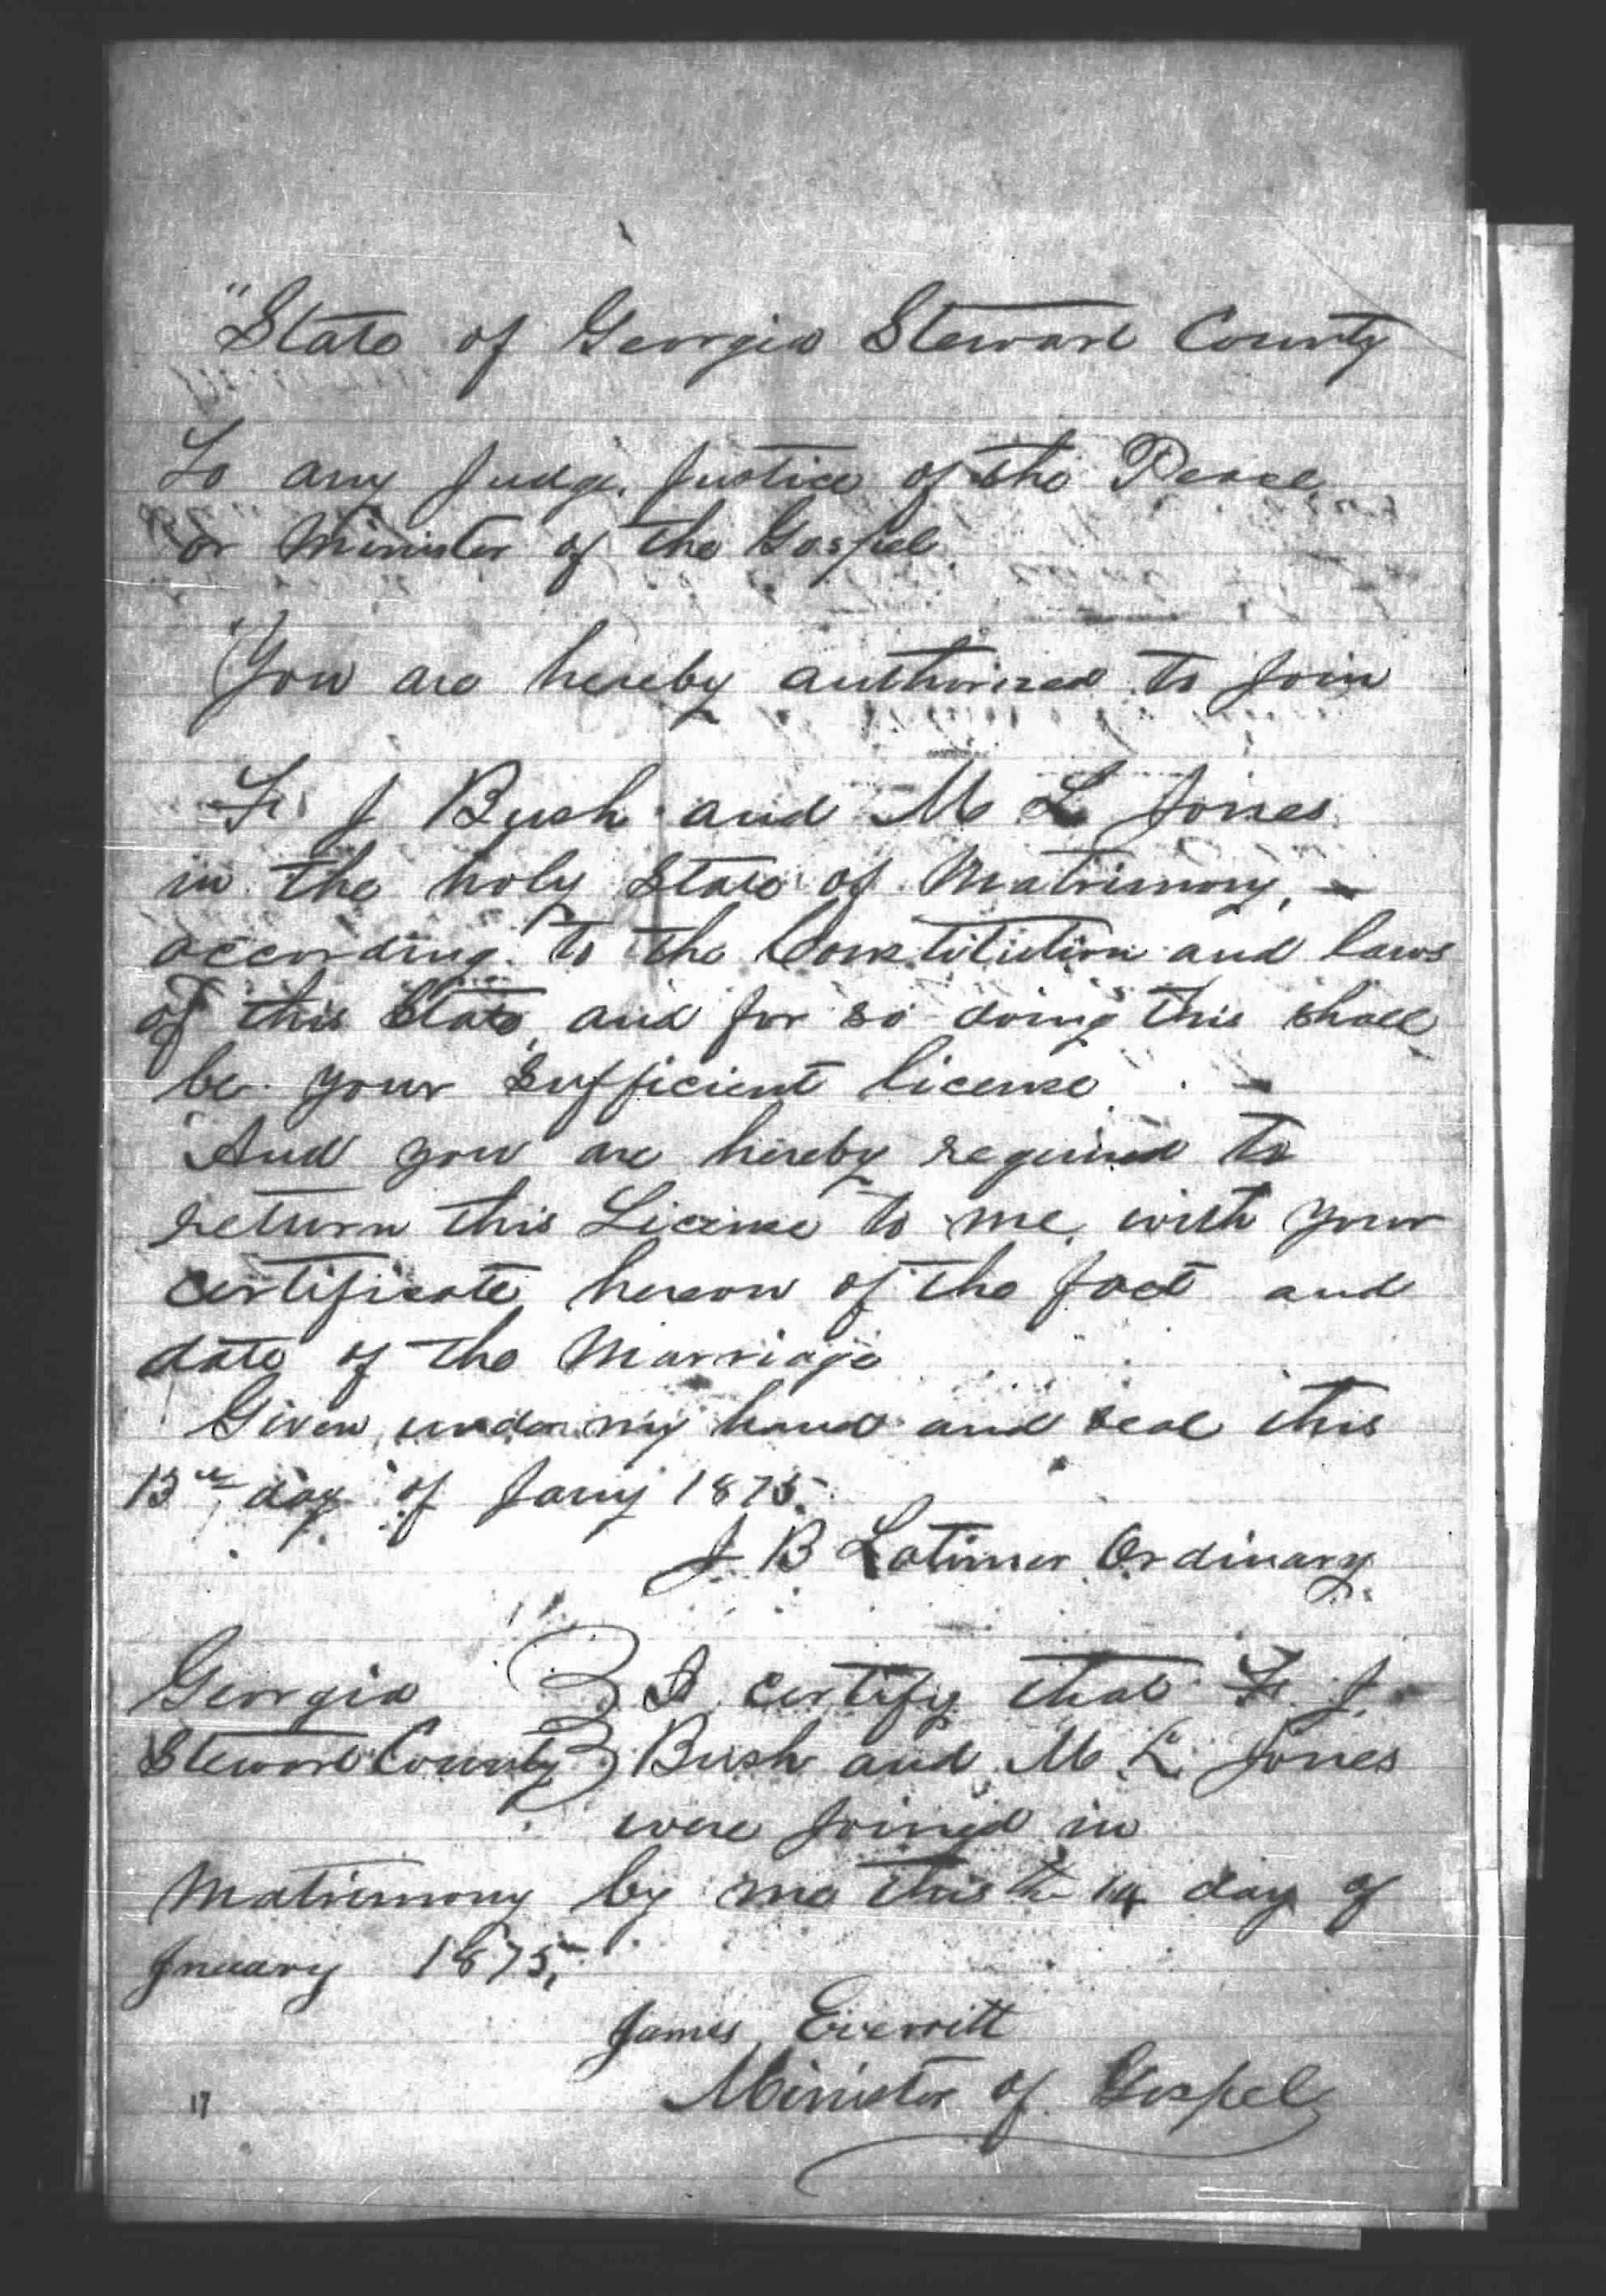 "State of Georgia Stewart County
To any Judge, Justice of the Peace
or Minister of the Gospel
"You are hereby authorized to join
F. J Bush and M L Jones
in the holy State of Matrimony,
according to the Constitution and laws
of this State, and for so doing this shall
be your sufficient license
And you are hereby required to
return this License to me, with your
certificate hereon of the fact and
date of the Marriage
Given under my hand and seal this
13th day of Jany 1875.
J B Latimer Ordinary
Georgia } I certify that F. J.
Stewart County } Bush and M L Jones
were joined in
Matrimony by me this the 14 day of
Jnuary 1875,
James Everritt
Minister of Gospel
17